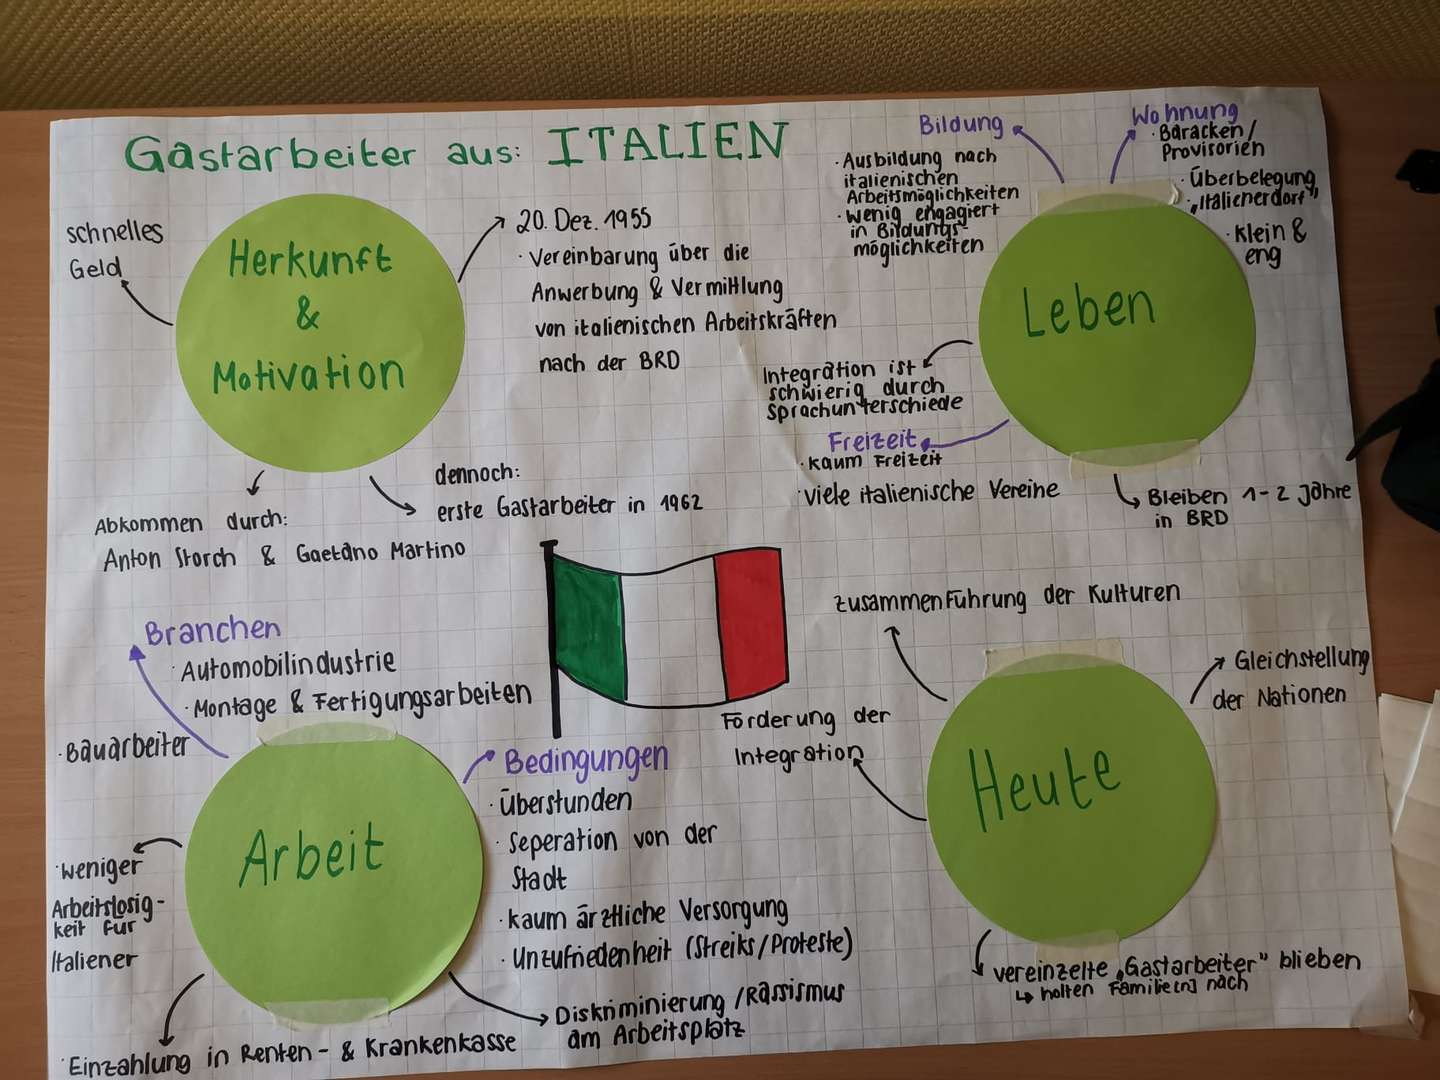 Gastarbeiter aus: ITALIEN
Herkunft
&
Motivation
schnelles
Geld
20. Dez. 1955
· Vereinbarung über die
Anwerbung & Vermittlung
von italienischen Arbeitskräften
nach der BRD
dennoch:
erste Gastarbeiter in 1962
Abkommen durch:
Anton Storch & Gaetano Martino
Leben
Bildung
· Ausbildung nach
italienischen
Arbeitsmöglichkeiten
· wenig engagiert
in Bildungs-
möglichkeiten
Wohnung
· Baracken/
Provisorien
· Überbelegung
· „Italienerdorf"
· klein &
eng
Integration ist
schwierig durch
Sprachunterschiede
Freizeit
· kaum Freizeit
· viele italienische Vereine
Bleiben 1-2 Jahre
in BRD
Branchen
· Automobilindustrie
· Montage & Fertigungsarbeiten
· Bauarbeiter
Arbeit
Bedingungen
· Überstunden
· Seperation von der
Stadt
· kaum ärztliche Versorgung
· Unzufriedenheit (Streiks/Proteste)
· weniger
Arbeitslosig-
keit für
Italiener
Diskriminierung/Rassismus
am Arbeitsplatz
· Einzahlung in Renten- & Krankenkasse
Heute
Zusammenführung der Kulturen
Gleichstellung
der Nationen
Förderung der
Integration
vereinzelte „Gastarbeiter" blieben
↳ holten Familie[n] nach